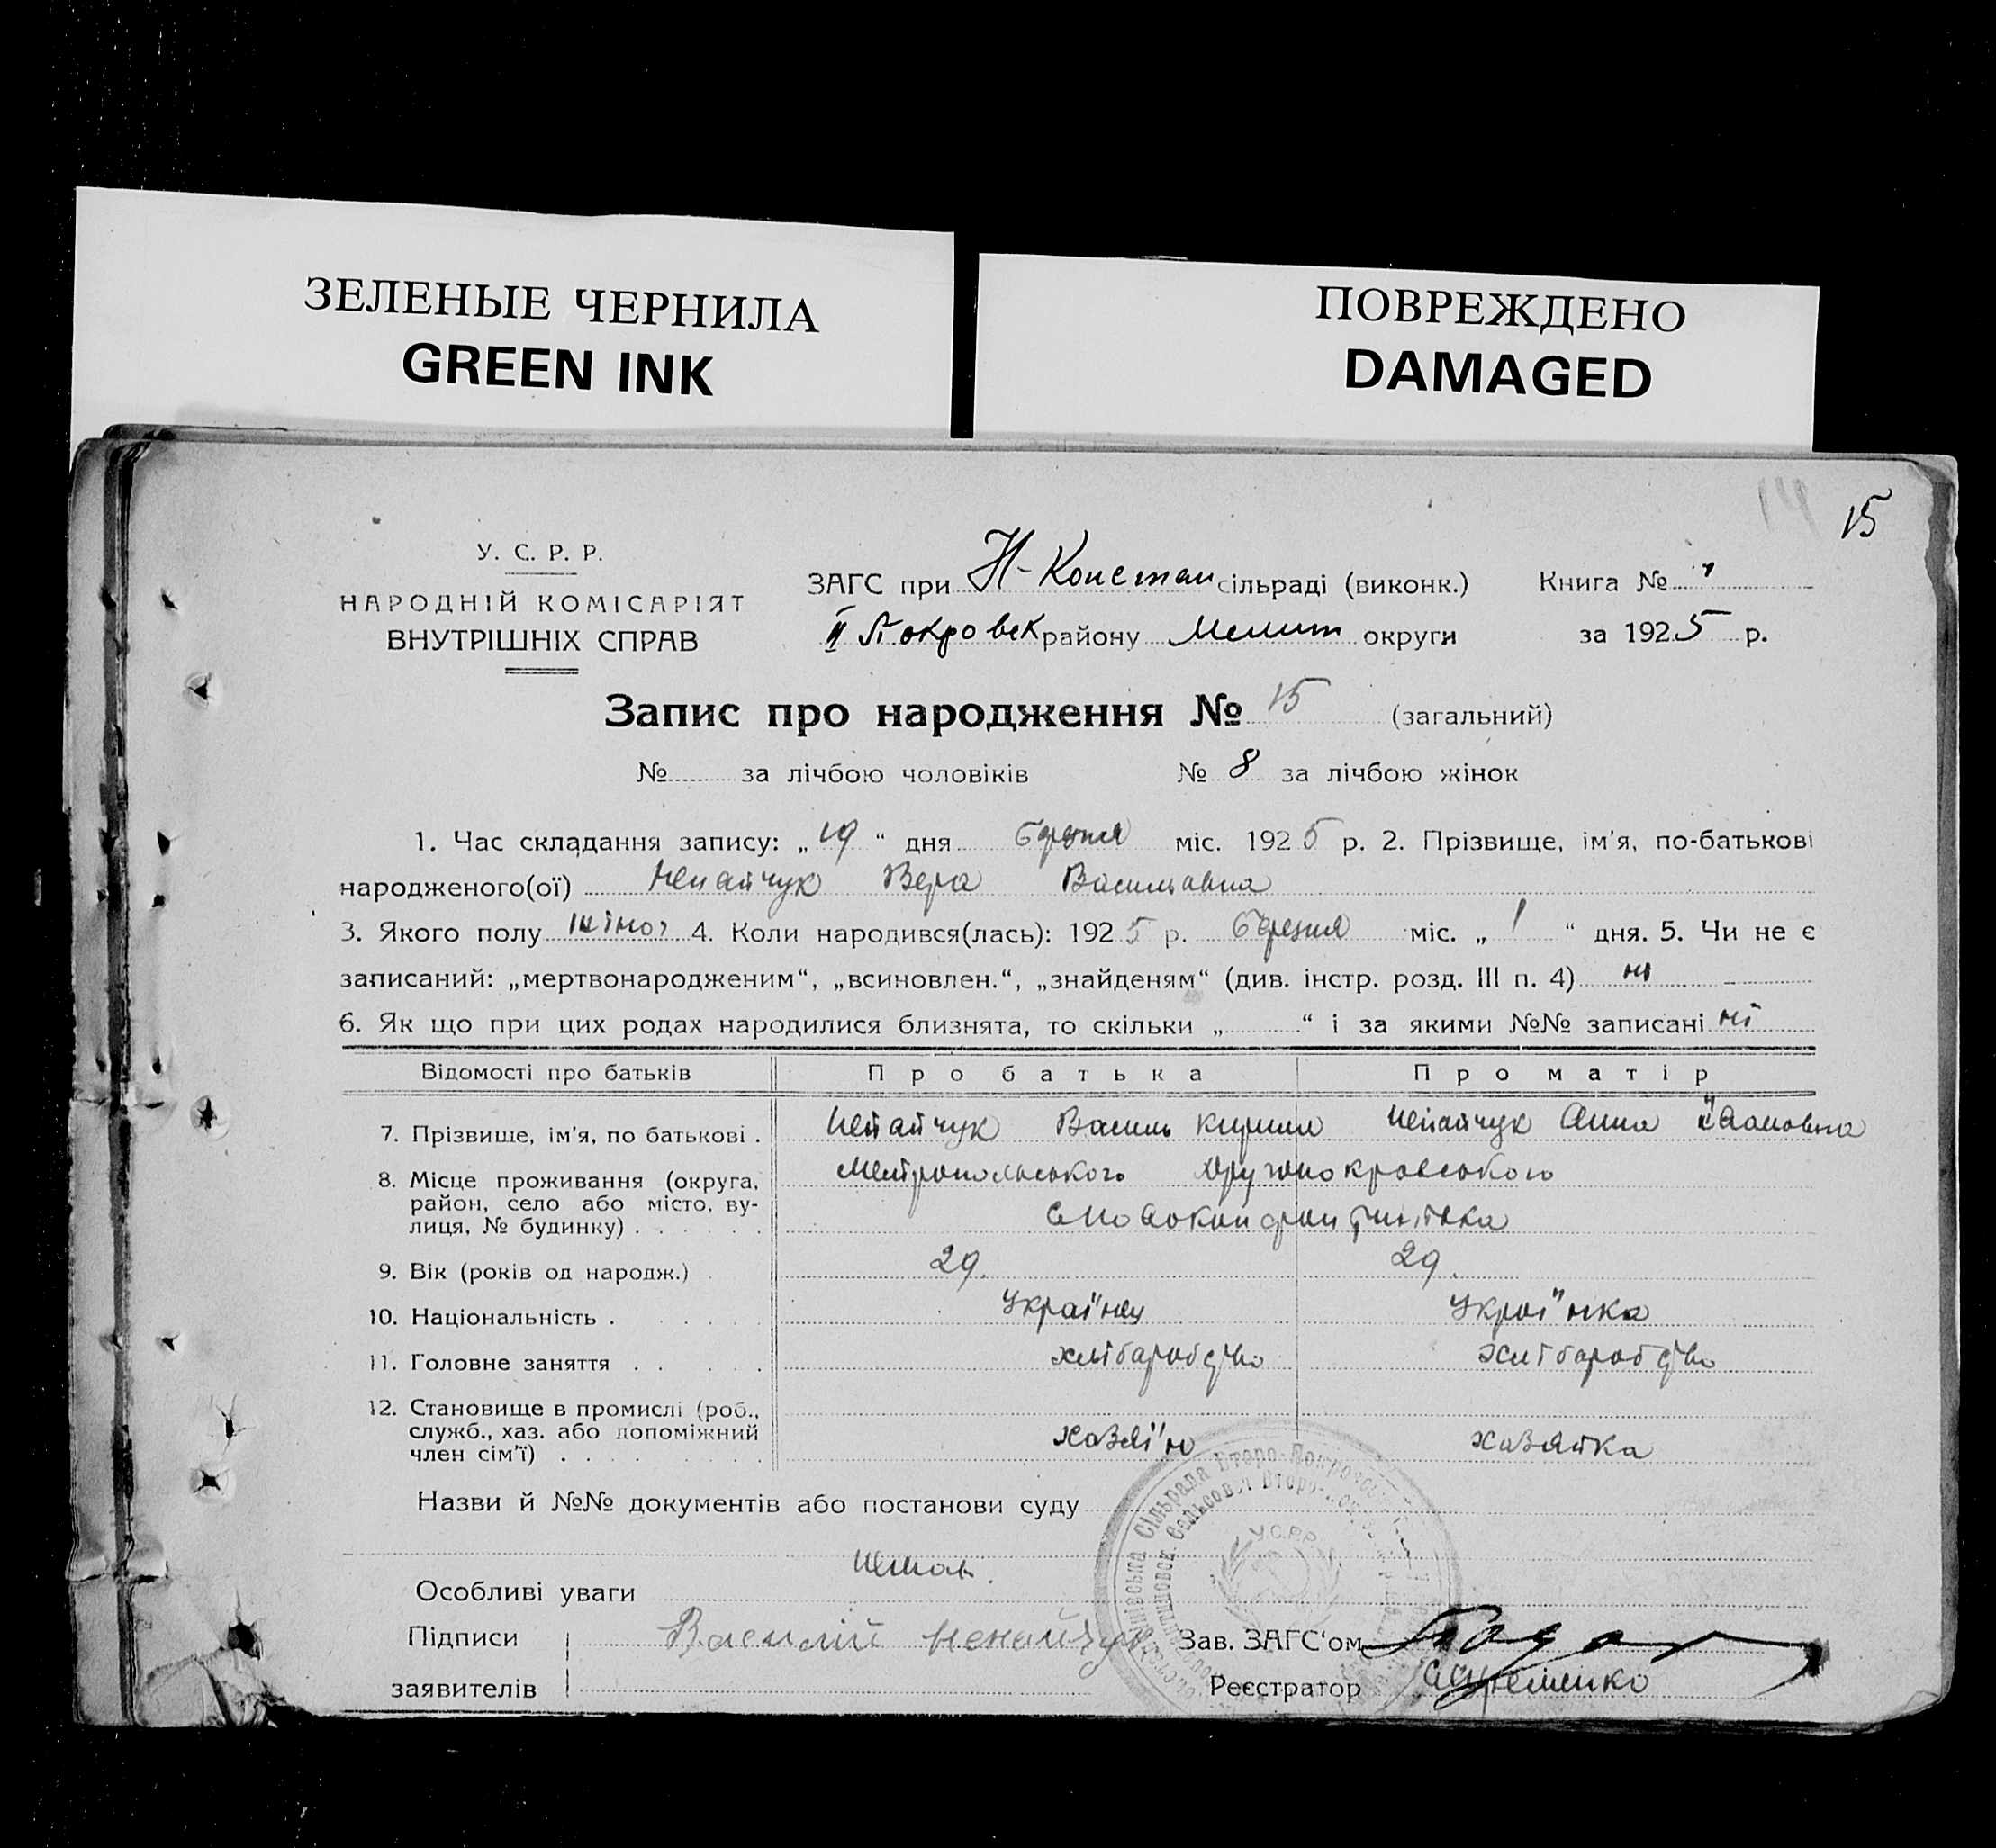 ЗЕЛЕНЫЕ ЧЕРНИЛА
GREEN INK
ПОВРЕЖДЕНО
DAMAGED
14 15
У. С. Р. Р.
НАРОДНІЙ КОМІСАРІЯТ
ВНУТРІШНІХ СПРАВ
ЗАГС при Н-Констан сільраді (виконк.) Книга №
II Покровск району Мелит округи за 1925 р.
Запис про народження № 15 (загальний)
№ за лічбою чоловіків № 8 за лічбою жінок
1. Час складання запису: „19“ дня березня міс. 1925 р. 2. Прізвище, ім'я, по-батькові
народженого(ої) Ненайчук Вера Васильавна
3. Якого полу жіноч 4. Коли народився(лась): 1925 р. березня міс. „1“ дня. 5. Чи не є
записаний: „мертвонародженим“, „всиновлен.“, „знайденям“ (див. інстр. розд. III п. 4) ні
6. Як що при цих родах народилися близнята, то скільки „ “ і за якими №№ записані ні
Відомості про батьків Про батька Про матір
7. Прізвище, ім'я, по батькові . Ненайчук Василь Кирил Ненайчук Анна
8. Місце проживання (округа, район, село або місто, вулиця, № будинку) Другопокровського
9. Вік (років од народж.) 29. 29.
10. Національність . Україн"ец Украї"нка
11. Головне заняття хлібаробство хлібаробство
12. Становище в промислі (роб., служб., хаз. або допоміжний член сім'ї) хазяї"н хазяйка
Назви й №№ документів або постанови суду
немає.
Особливі уваги
Підписи Василій Ненайчук Зав. ЗАГС'ом
заявителів Реєстратор
У.С.Р.Р.